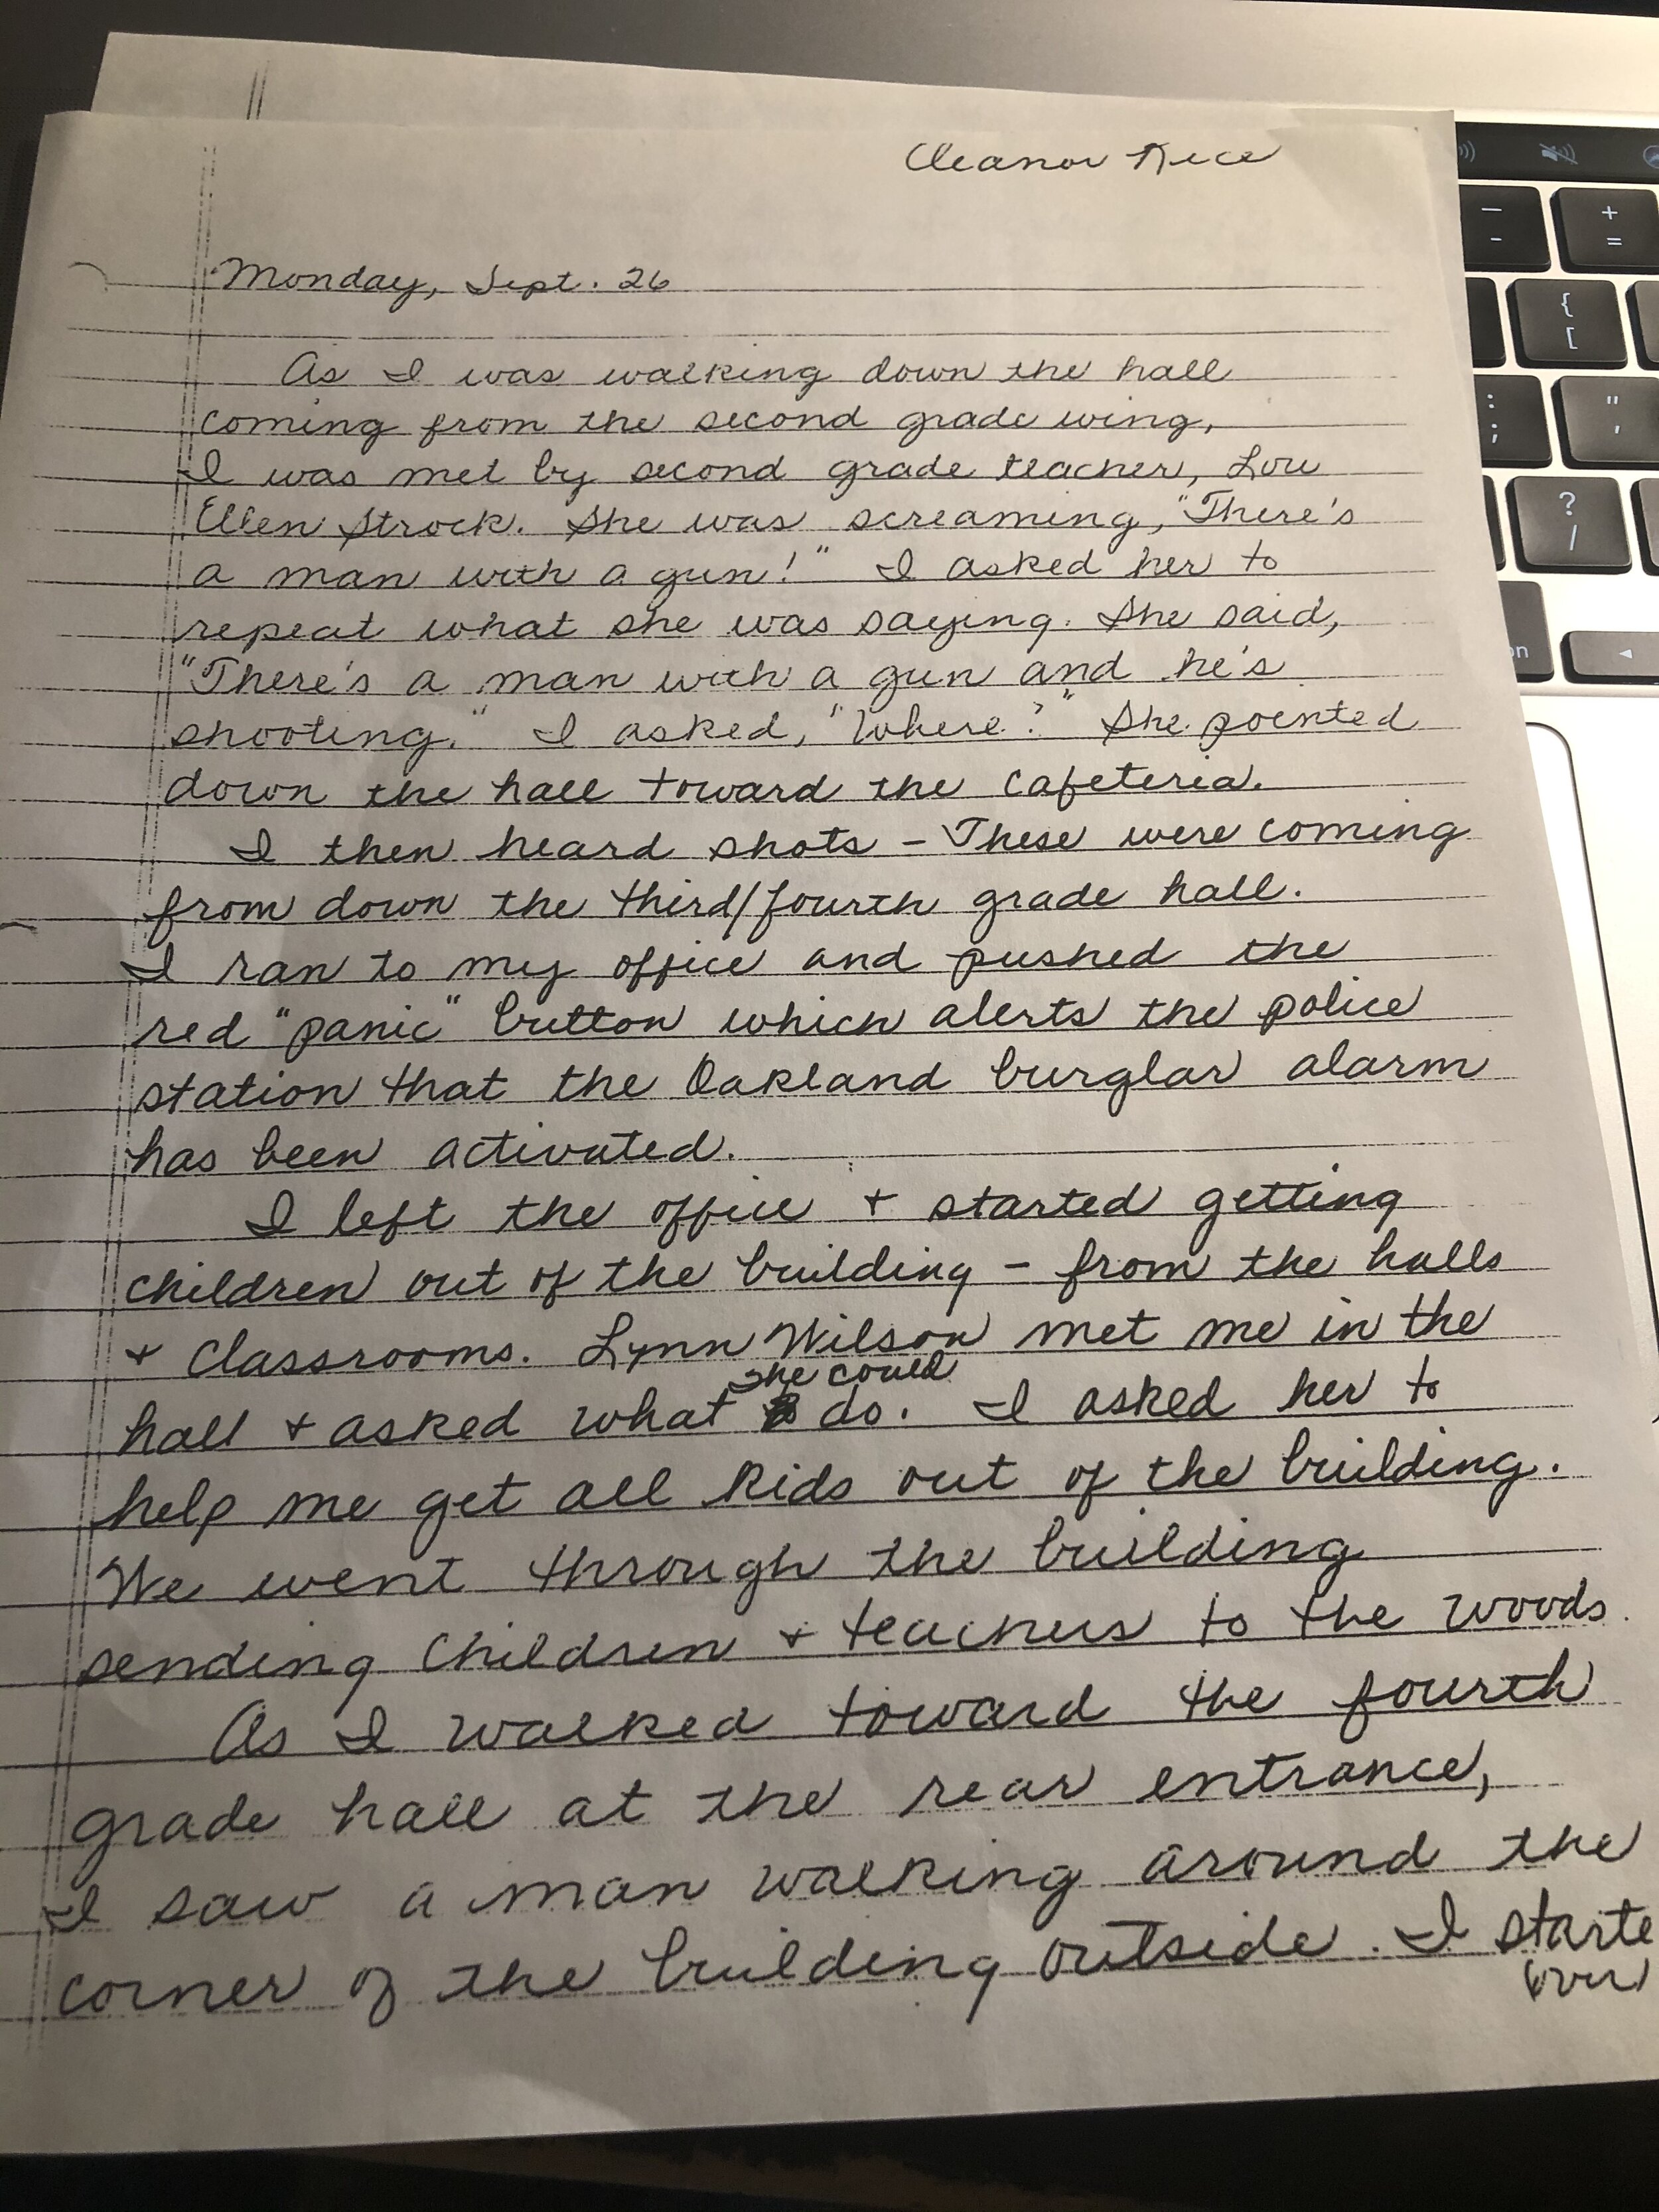 Eleanor Rice
Monday, Sept. 26
As I was walking down the hall
coming from the second grade wing,
I was met by second grade teacher, Lou
Ellen Strock. She was screaming, "There's
a man with a gun!" I asked her to
repeat what she was saying. She said,
"There's a man with a gun and he's
shooting." I asked, "Where?" She pointed
down the hall toward the cafeteria.
I then heard shots - These were coming
from down the third/fourth grade hall.
I ran to my office and pushed the
red "panic" button which alerts the police
station that the Oakland burglar alarm
has been activated.
I left the office + started getting
children out of the building - from the halls
+ classrooms. Lynn Wilson met me in the
she could
hall + asked what do. I asked her to
help me get all kids out of the building.
We went through the building
sending children + teachers to the woods.
As I walked toward the fourth
grade hall at the rear entrance,
I saw a man walking around the
corner of the building outside. I starte
(over)
+
=
-
{
[
:
;
"
'
?
/